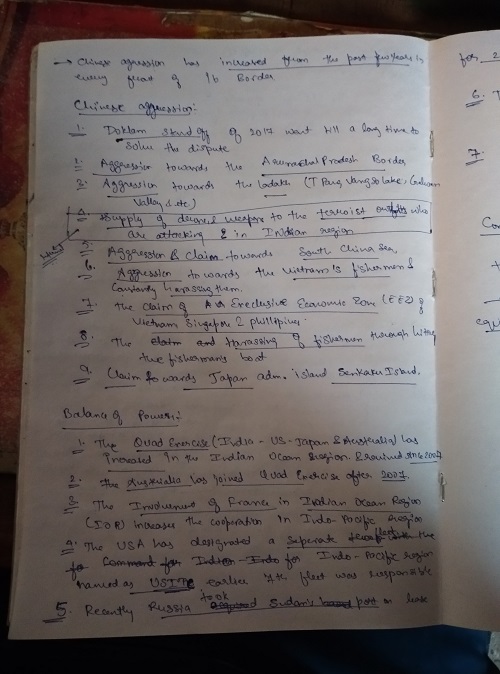 → Chinese agression has increased from the past few years in
every front of Ib Border
Chinese aggression:
1. Doklam stand off of 2017 want till a long time to
solve the dispute
2. Aggression towards the Arunachal Pradesh Border
3. Aggression towards the ladakh (
Valley & etc)
4. Supply of weapos to the terroist who
are attacking in Indian region
5. Aggression & Claim towards South China Sea,
6. Aggression towards the Vietnam's fishermen &
harassing them.
7. The claim of Economic Zone (EEZ) of
Vietnam Singapore & phillipine.
8. The claim and harassing of fishermen through hitting
the fishermans boat
9. Claim towards Japan adm. island Senkaku Island.
Balance of Powers:
1. The Quad Exercise (India - US - Japan & Australia) has
increased in the Indian Ocean Region & revived since 2007
2. The Australia has joined Quad Exercise after 2007.
3. The Involvement of France in Indian Ocean Region
(IOR) increases the cooperation in Indo-Pacific Region
4. The USA has designated a seperate the
for Command for Indian Indo for Indo-Pacific region
named as earlier 7th fleet was responsible
5. Recently Russia took Sudan's post on lease
for 2
6. T
7.